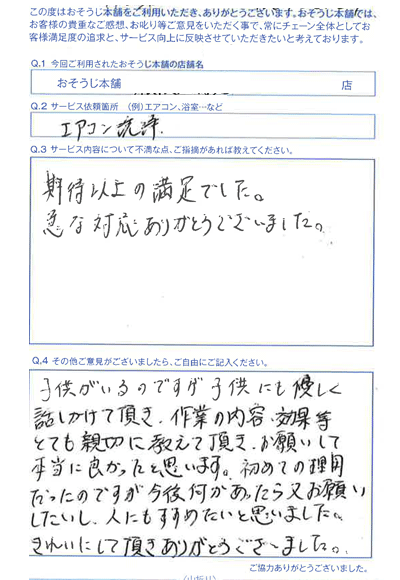 この度はおそうじ本舗をご利用いただき、ありがとうございます。おそうじ本舗では、
お客様の貴重なご感想、お叱り等ご意見をいただく事で、常にチェーン全体としてお
客様満足度の追求と、サービス向上に反映させていただきたいと考えております。
Q.1 今回ご利用されたおそうじ本舗の店舗名
おそうじ本舗 店
Q.2 サービス依頼箇所 (例)エアコン、浴室…など
エアコン洗浄.
Q.3 サービス内容について不満な点、ご指摘があれば教えてください。
期待以上の満足でした。
急な対応ありがとうございました。
Q.4 その他ご意見がございましたら、ご自由にご記入ください。
子供がいるのですが子供にも優しく
話しかけて頂き、作業の内容・効果等
とても親切に教えて頂き、お願いして
本当に良かったと思います。初めての利用
だったのですが今後何かあったら又お願い
したいし、人にもすすめたいと思いました。
きれいにして頂きありがとうございました。
ご協力ありがとうございました。